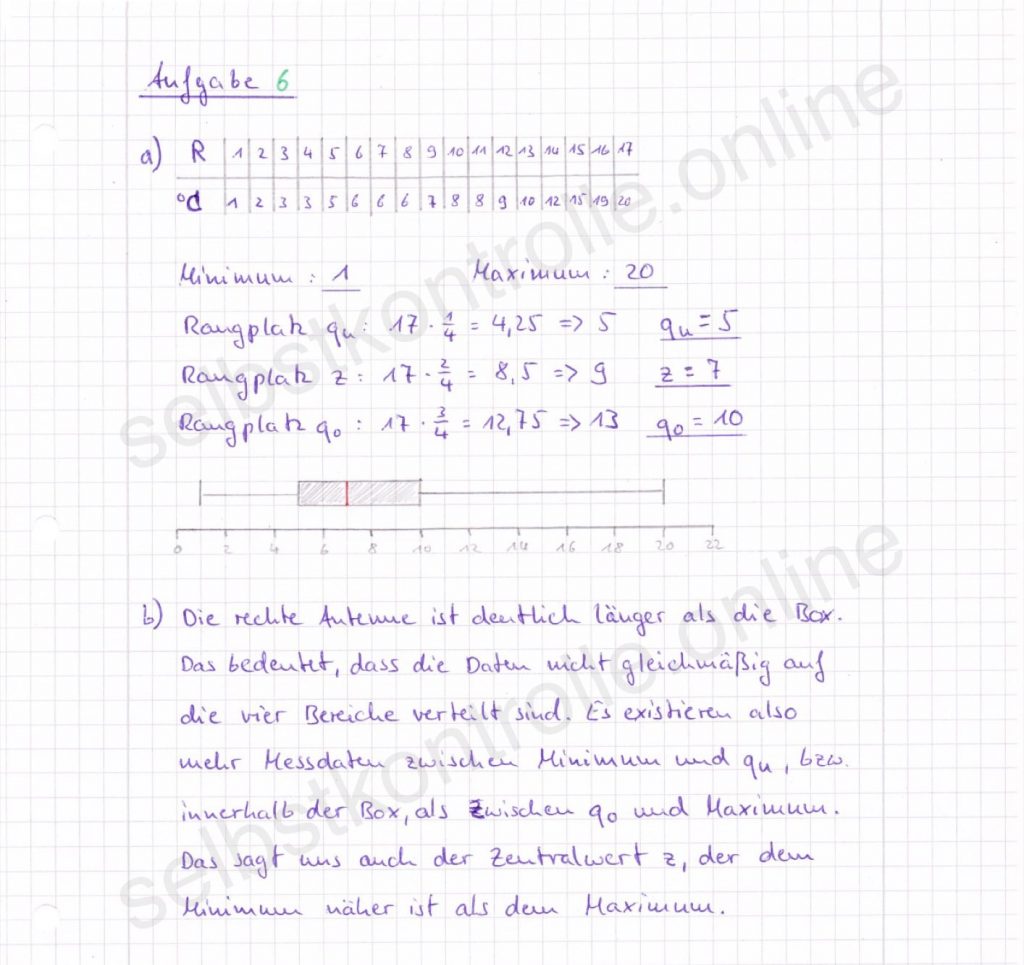 Aufgabe 6
a) R 1 2 3 4 5 6 7 8 9 10 11 12 13 14 15 16 17
°d 1 2 3 3 5 6 6 6 7 8 8 9 10 12 15 19 20
Minimum : 1 Maximum : 20
Rangplatz qu : 17 · 1/4 = 4,25 => 5 qu = 5
Rangplatz z : 17 · 2/4 = 8,5 => 9 z = 7
Rangplatz qo : 17 · 3/4 = 12,75 => 13 qo = 10
0 2 4 6 8 10 12 14 16 18 20 22
b) Die rechte Antenne ist deutlich länger als die Box.
Das bedeutet, dass die Daten nicht gleichmäßig auf
die vier Bereiche verteilt sind. Es existieren also
mehr Messdaten zwischen Minimum und qu, bzw.
innerhalb der Box, als zwischen qo und Maximum.
Das sagt uns auch der Zentralwert z, der dem
Minimum näher ist als dem Maximum.
selbstkontrolle.online
selbstkontrolle.online